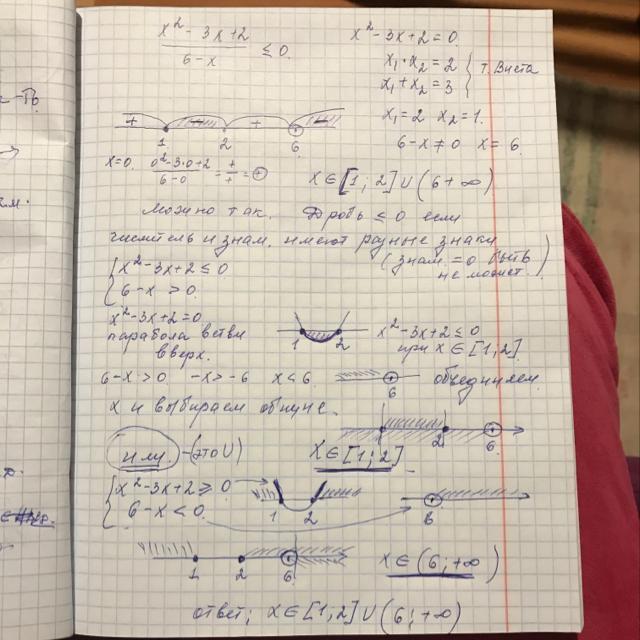 x² - 3x + 2 / 6 - x ≤ 0.
x² - 3x + 2 = 0.
x₁ · x₂ = 2
x₁ + x₂ = 3
т. Виета
x₁ = 2 x₂ = 1.
6 - x ≠ 0 x = 6.
+ - + -
1 2 6
x = 0. 0² - 3·0 + 2 / 6 - 0 = + / + = +
x ∈ [1; 2] ∪ (6 + ∞)
Можно так. Дробь ≤ 0 если
числитель и знам. имеют разные знаки
(знам. = 0 быть
не может)
{ x² - 3x + 2 ≤ 0
{ 6 - x > 0.
x² - 3x + 2 = 0
парабола ветви
вверх.
1 2
x² - 3x + 2 ≤ 0
при x ∈ [1; 2].
6 - x > 0 - x > - 6 x < 6.
6
объединяем
x и выбираем общие.
2 6.
или - (это ∪)
x ∈ [1; 2]
{ x² - 3x + 2 ≥ 0
{ 6 - x < 0.
1 2
6
1 2 6
x ∈ (6; +∞)
ответ; x ∈ [1, 2] ∪ (6; +∞)